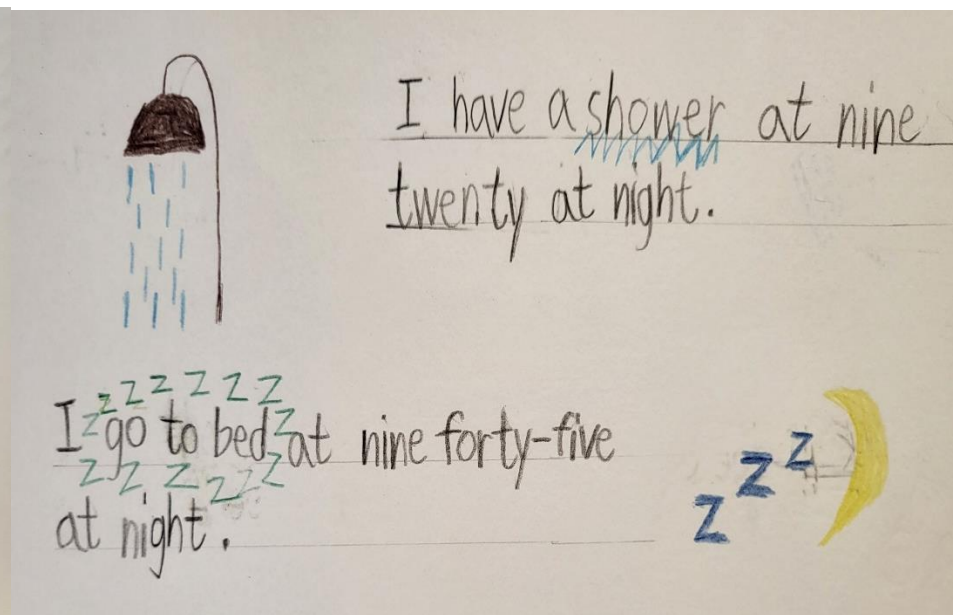 I have a shower at nine
twenty at night.
z z z z z z
I z go to bed z at nine forty-five
z z z z z z
at night.
z z z